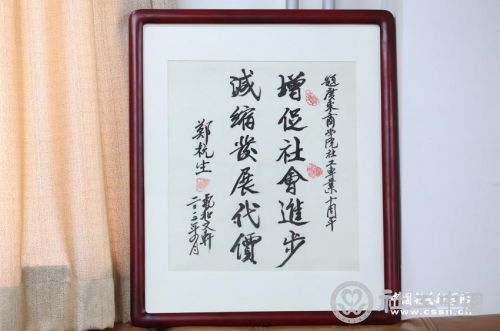 題廣東商学院社工專業十周年
增促社會進步
減縮發展代價
鄭杭生
中国社会科学网
www.cssn.cn